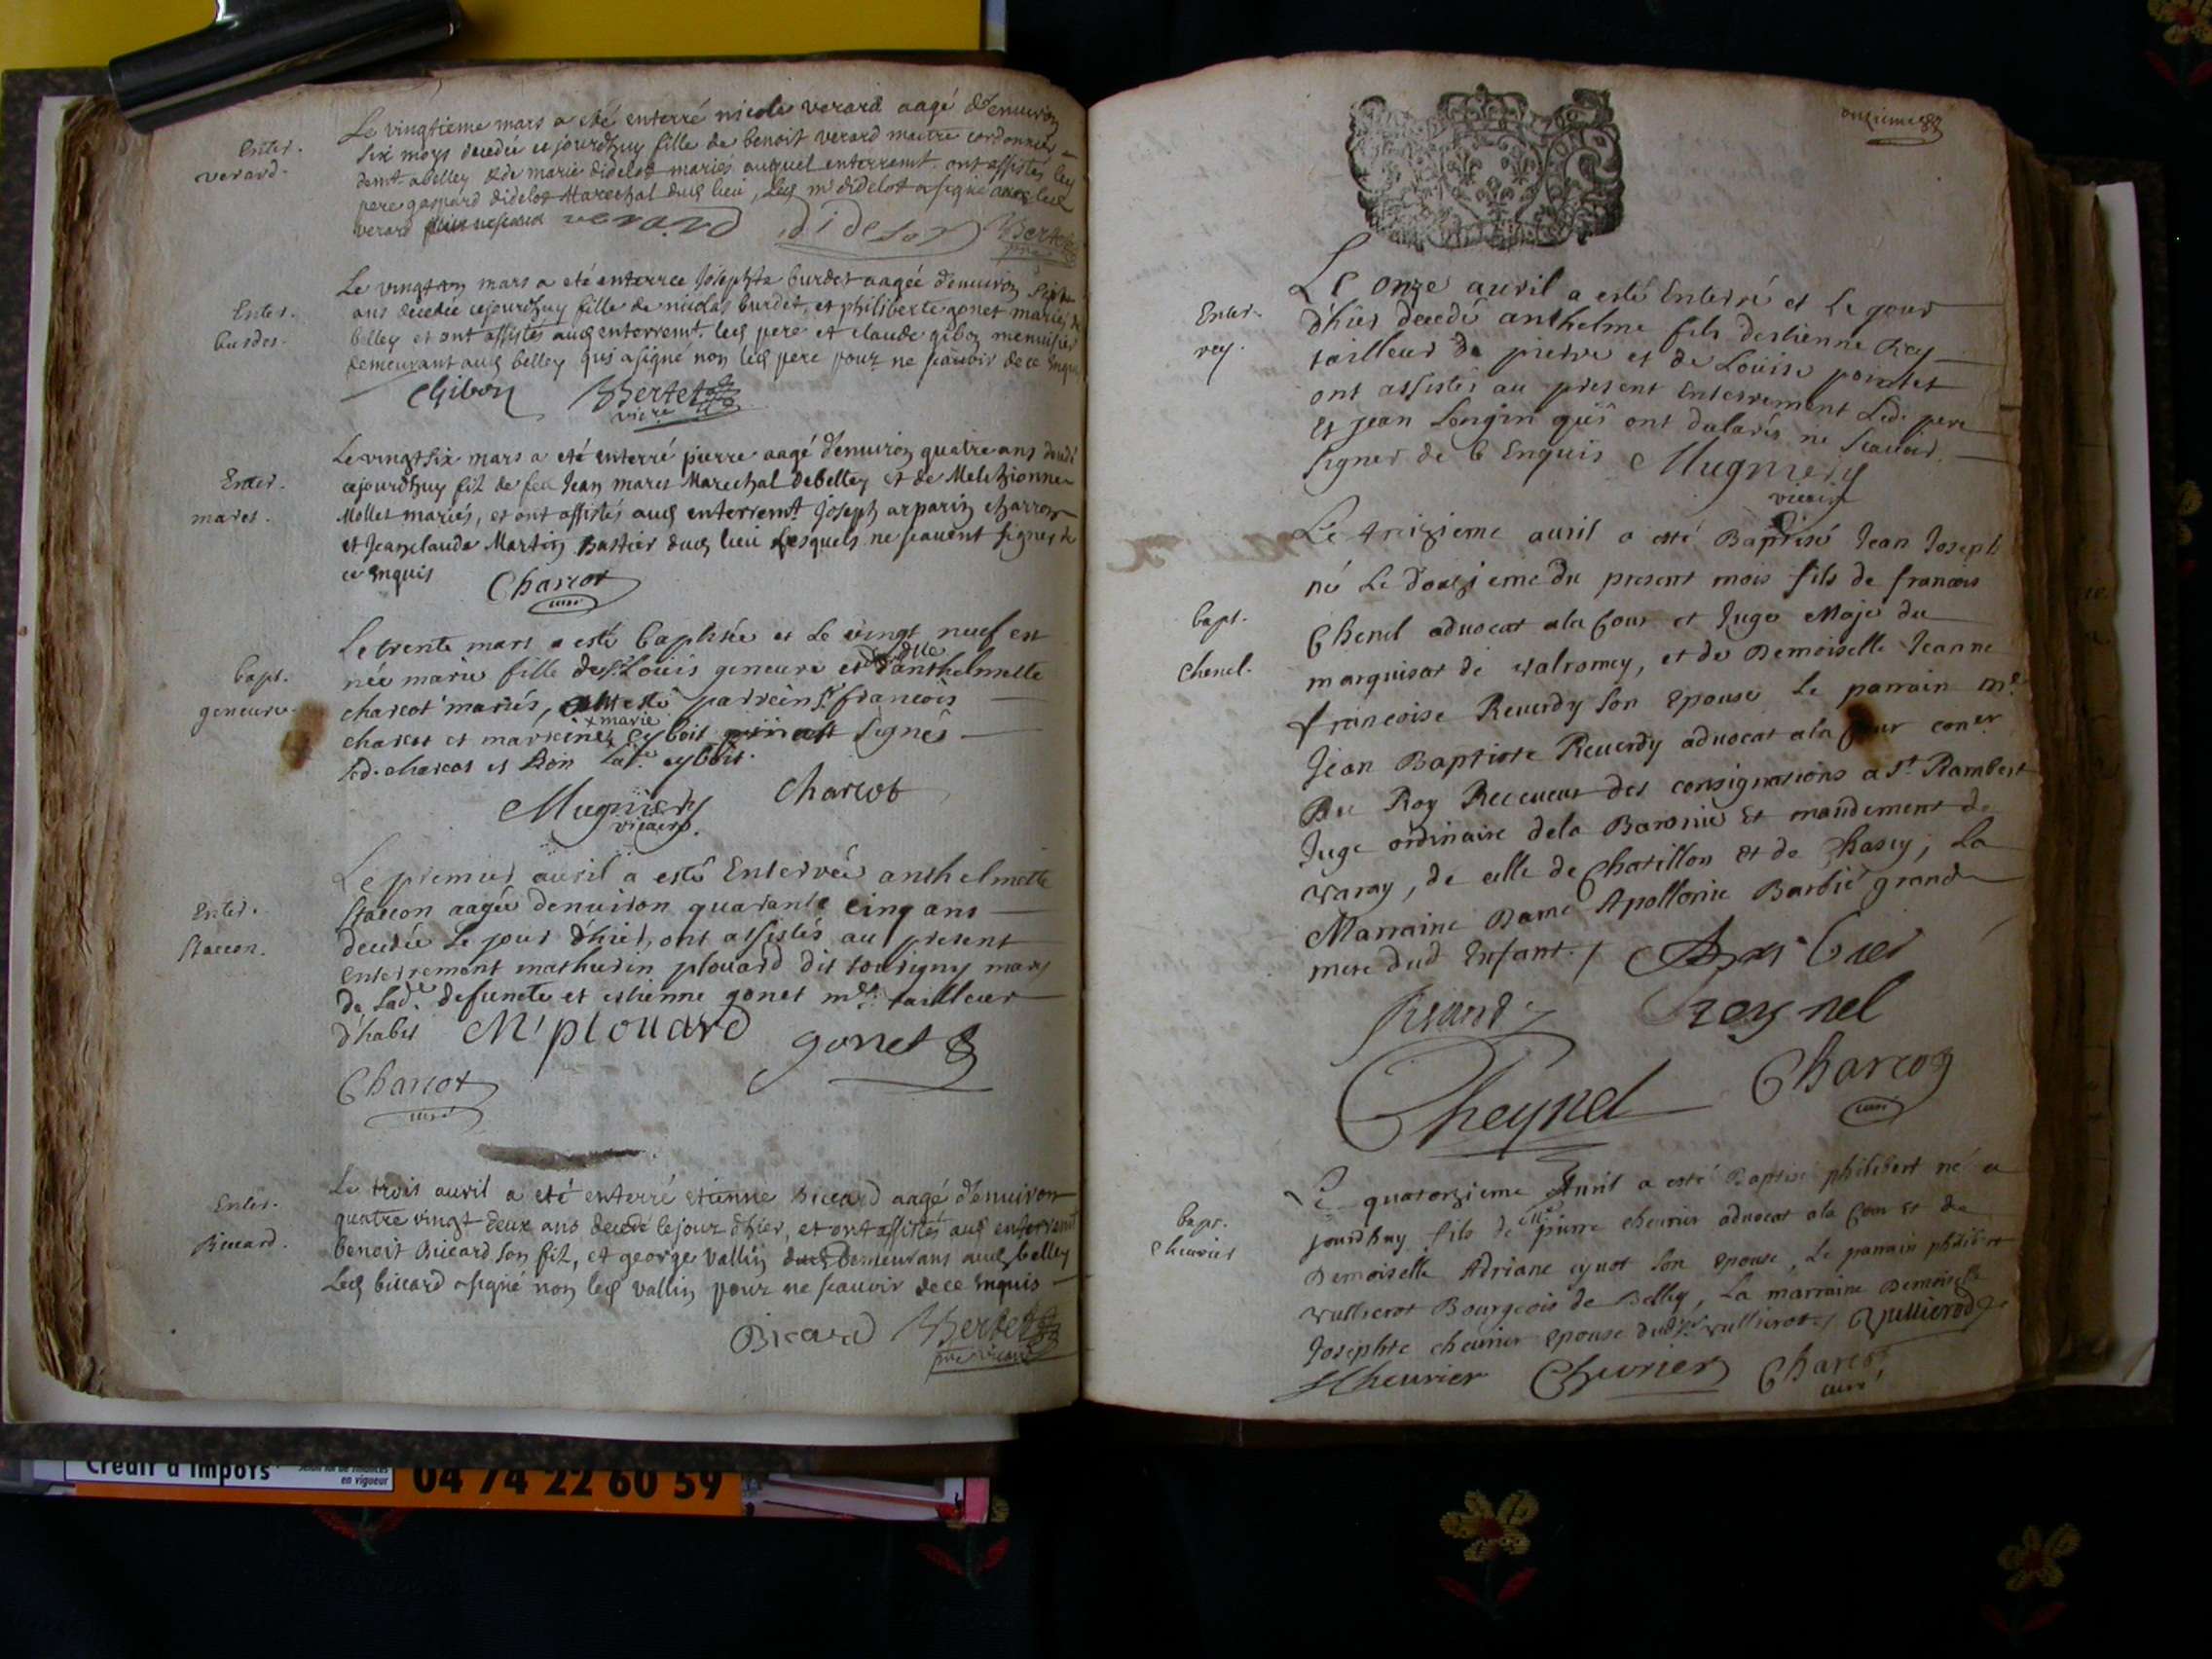 Enter.
verard.
Le vingtieme mars a eté enterré nicole verard aagé d'enuiron
six moys decedée cejourdhuy fille de benoit verard maitre cordonnier
demt abelley & de marie didelot mariés auquel enterremt. ont assistés led
pere gaspard didelot Marechal dud lieu, led mr didelot a signé avec led
verard
verard didelot Bertet
Enter.
burdet.
Le vingt un mars a eté enterree Josephte burdet aagée d'enuiron sept
ans decedée cejourdhuy fille de nicolas burdet, et philiberte gonet mariés de
belley et ont assistés aud enterremt. led pere et claude gibon menuisier
demeurant aud belley qui a signé non led pere pour ne scauoir de ce enquis
CGibon Bertet
vicre
Enter.
maret.
Le vingt six mars a eté enterré pierre aagé d'enuiron quatre ans decedé
cejourdhuy fil de feu Jean maret Marechal de belley et de Melchionne
Mollet mariés, et ont assistés aud enterremt. Joseph arparin charron
et Jeanclaude Martin Bastier dud lieu lesquels ne scauent signer de
ce enquis Charcot
curé
bapt.
geneure.
Le trente mars a esté baptisée et le vingt neuf est
née marie fille de sr. Louis geneure et dlle d'anthelmette
charcot mariés, parrein sr. francois
charcot et marreine x marie cyboit signés
led. charcot et non lade. cyboit.
Mugniery charcot
vicaire.
Enter.
staccon.
Le premier auril a esté Enterrée anthelmette
staccon aagée denuiron quarante cinq ans
decedée le jour d'hier, ont assistés au present
enterrement mathurin plouard dit tourigny mary
de lade. defuncte et estienne gonet me. tailleur
d'habit M plouard gonet
Charcot
curé
Enter.
Biccard.
Le trois auril a eté enterré etienne Biccard aagé d'enuiron
quatre vingt deux ans decedé le jour d'hier, et ont assistés aud enterremt
benoit Biccard son fil, et george vallin demeurans aud belley
Led biccard a signé non led vallin pour ne scauoir de ce enquis
Bicard Bertet
pre vicaire
onzieme
Enter.
rey.
Le onze auril a esté Enterré et le jour
d'hier decedé anthelme fils destienne Rey
tailleur de pierre et de Louise pointet
ont assistés au present Enterrement led. pere
et jean Longin qui ont dclarés ne scauoir
signer de C Enquis Mugniery
vicaire
bapt.
Chenel.
Le treizieme auril a esté Baptisé Jean Joseph
né Le douzieme du present mois fils de francois
Chenel aduocat ala Cour et Juge Maje du
marquisat de valromey, et de Demoiselle Jeanne
francoise Reuerdy son epouse le parrain mr.
Jean Baptiste Reuerdy aduocat ala Cour coner
Du Roy Receueur des consignations a St. Rambert
Juge ordinaire dela Baronie et mandement de
varay, de celle de Chatillon et de Chasey, La
Marraine Dame Apollonie Barbié grande
mere dud Enfant. / Barbier
Cheynel Charcot
curé
bapt.
cheurier
Le quatorzieme Auril a esté Baptisé philibert né ce
jourdhuy fils de me pierre cheurier aduocat ala Cour et de
Demoiselle Adriane cynot son epouse, Le parrain philibert
vullierot Bourgeois de Belley, La marraine Demoiselle
Josephte cheurier epouse dud sr vullierot / Vullierod
JCheurier Cheurier Charcot
curé
Crédit d'impôts
en vigueur
04 74 22 60 59